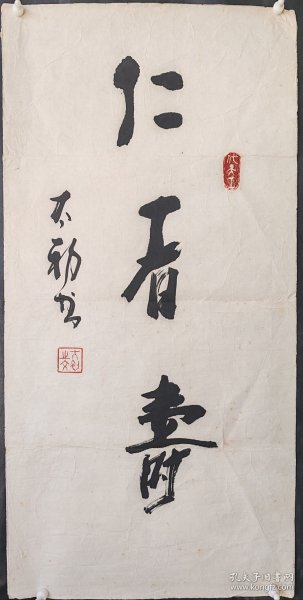 仁者壽
大勳书
孔夫子旧书网
www.kongfz.com